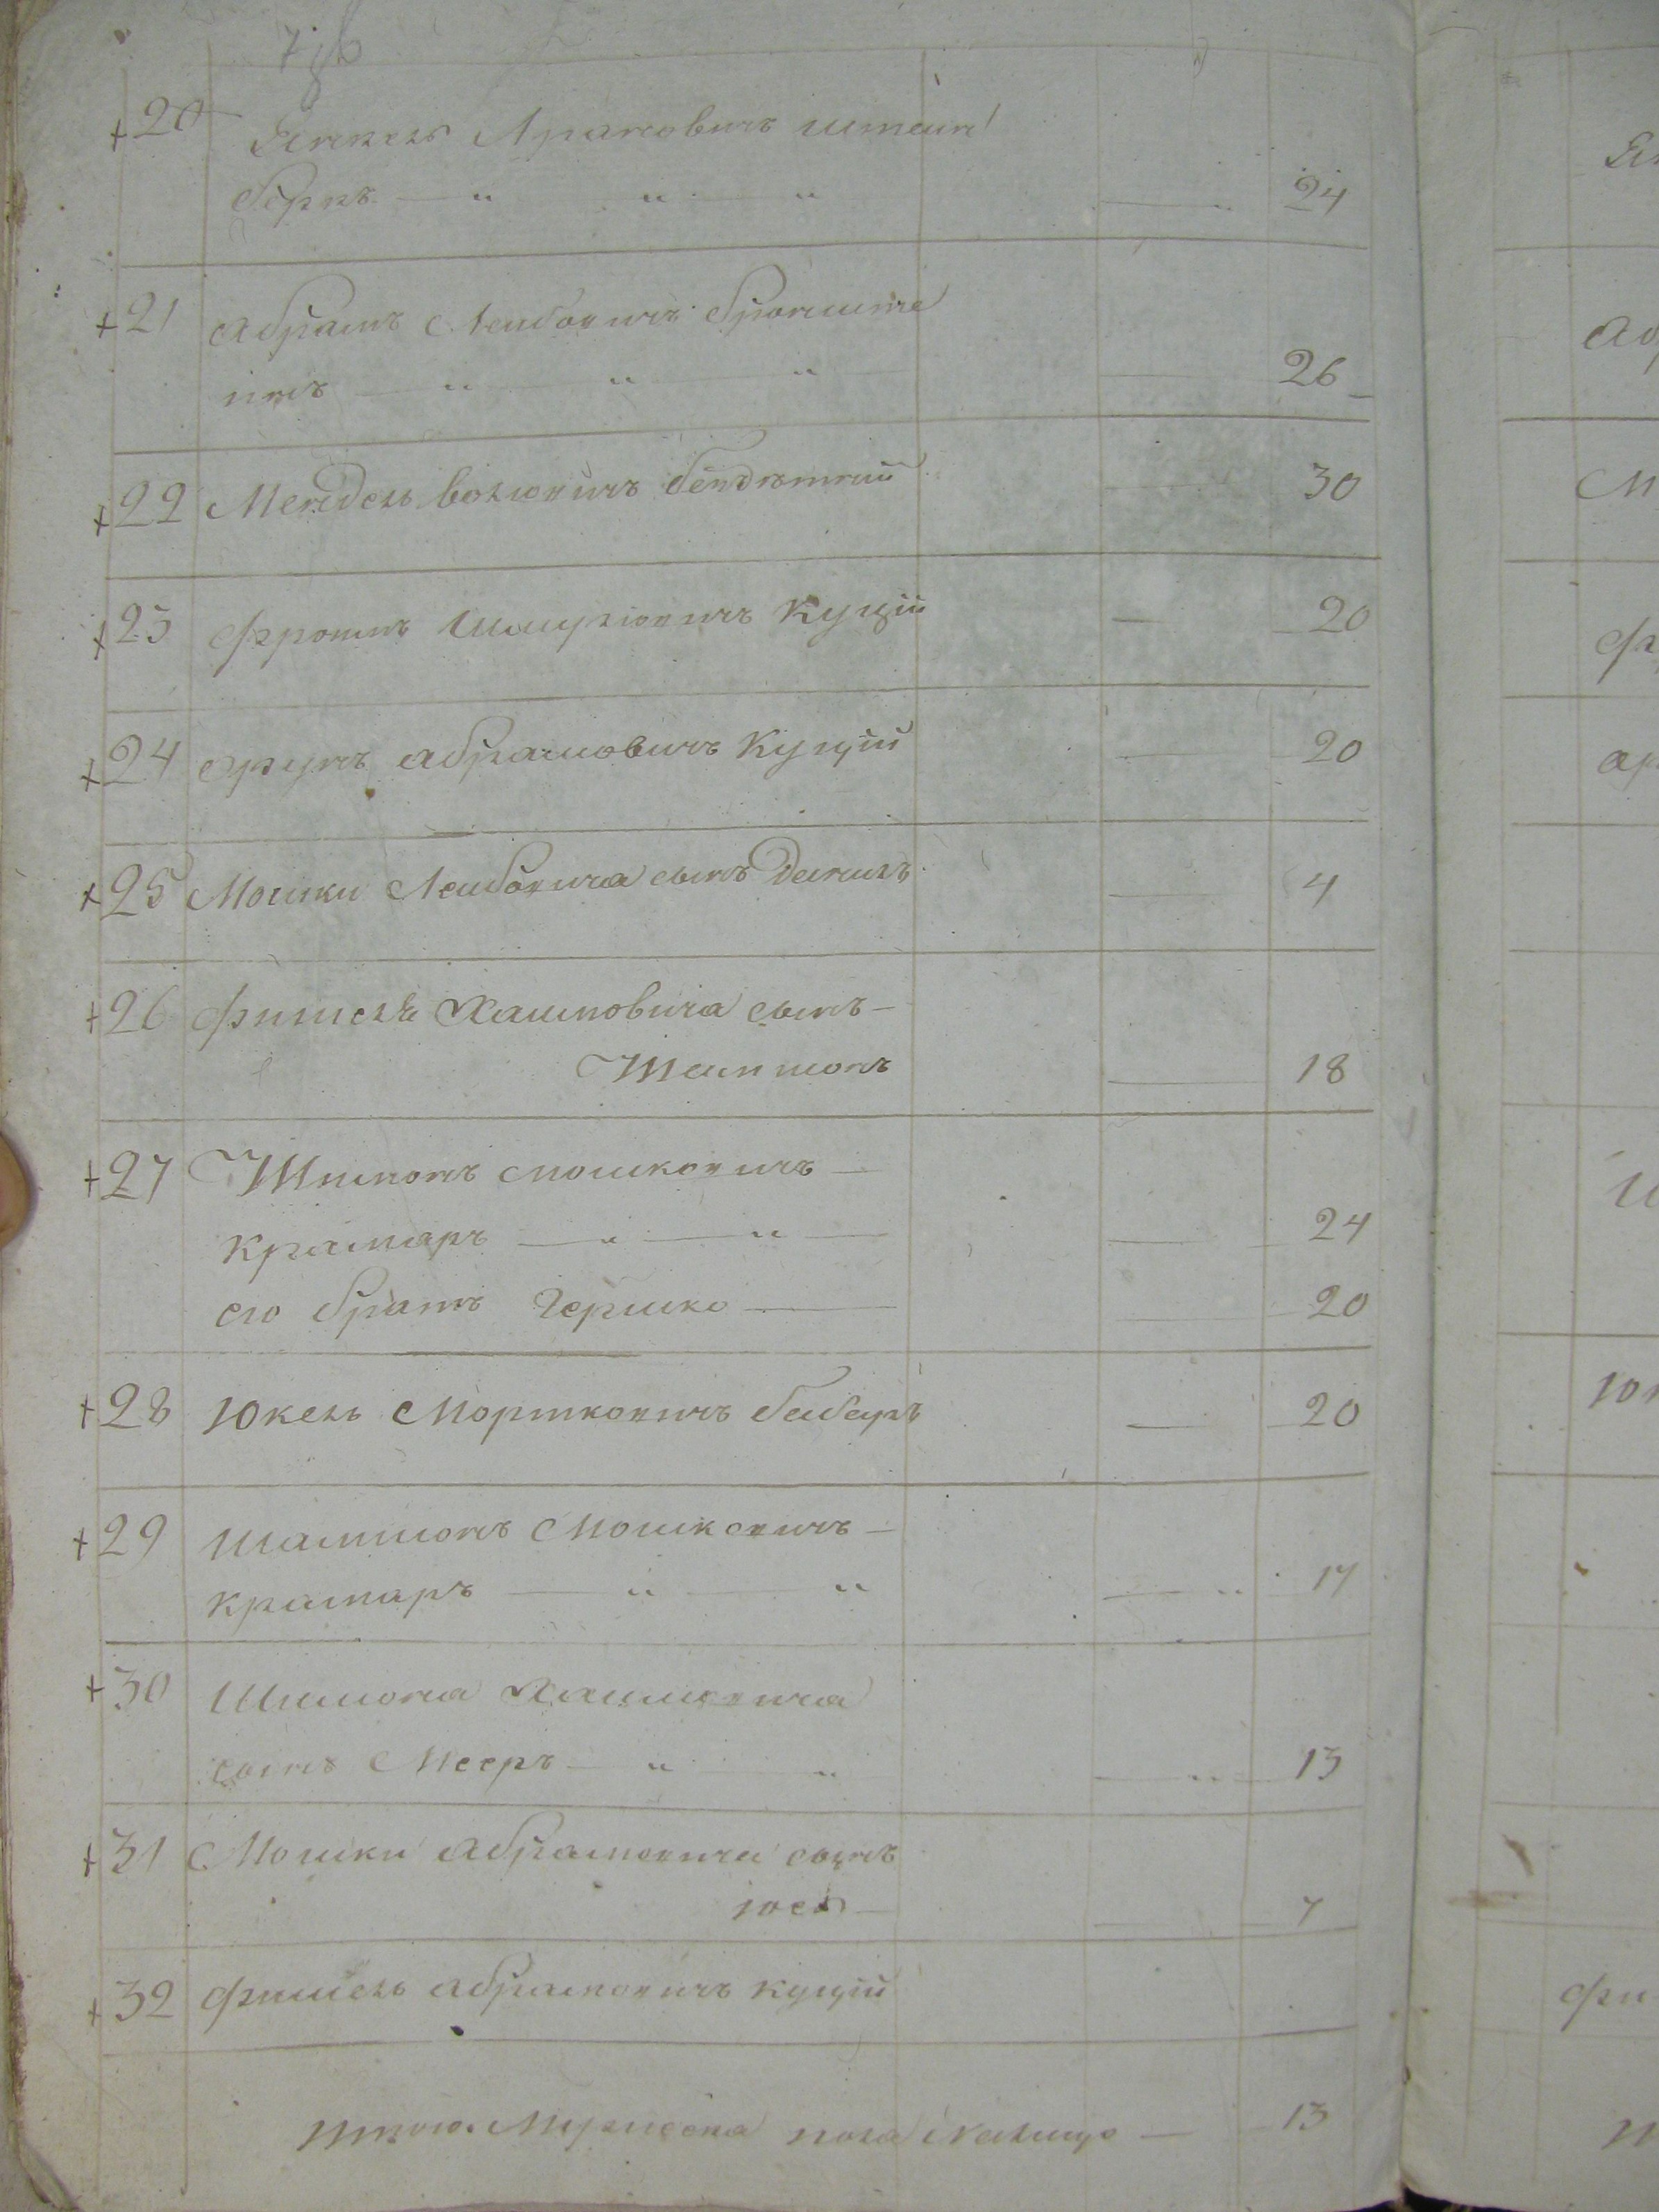 20 Янкель Ароновичъ Штейн
бергъ — " " " — " 24
21 Абрамъ Лейбовичъ Бронште
инъ — " — " — " — 26
22 Мендель Волковичъ — 30
23 Фроимъ Шмулiовичъ Куцiй — 20
24 Арунъ Абрамовичъ Куцiй — 20
25 Мошки Лейбовича сынъ Данилъ — 4
26 Фишеля Хаимовича сынъ —
Шапшонъ — 18
27 Шимонъ Мошковичъ —
Крамаръ — " — " — 24
его братъ Гершко — 20
28 Юкель Мортковичъ — 20
29 Шапшонъ Мошковичъ —
Крамаръ — " — " — " 17
30 Шимона Хаимовича
сынъ Мееръ — " " — " 13
31 Мошки Абрамовича сынъ
Юсь — 7
32 Фишель Абрамовичъ Куцiй
Итого Мужеска пола —
13
Ян
Аб
М
Фр
ар
Ш
Юк
Фи
И